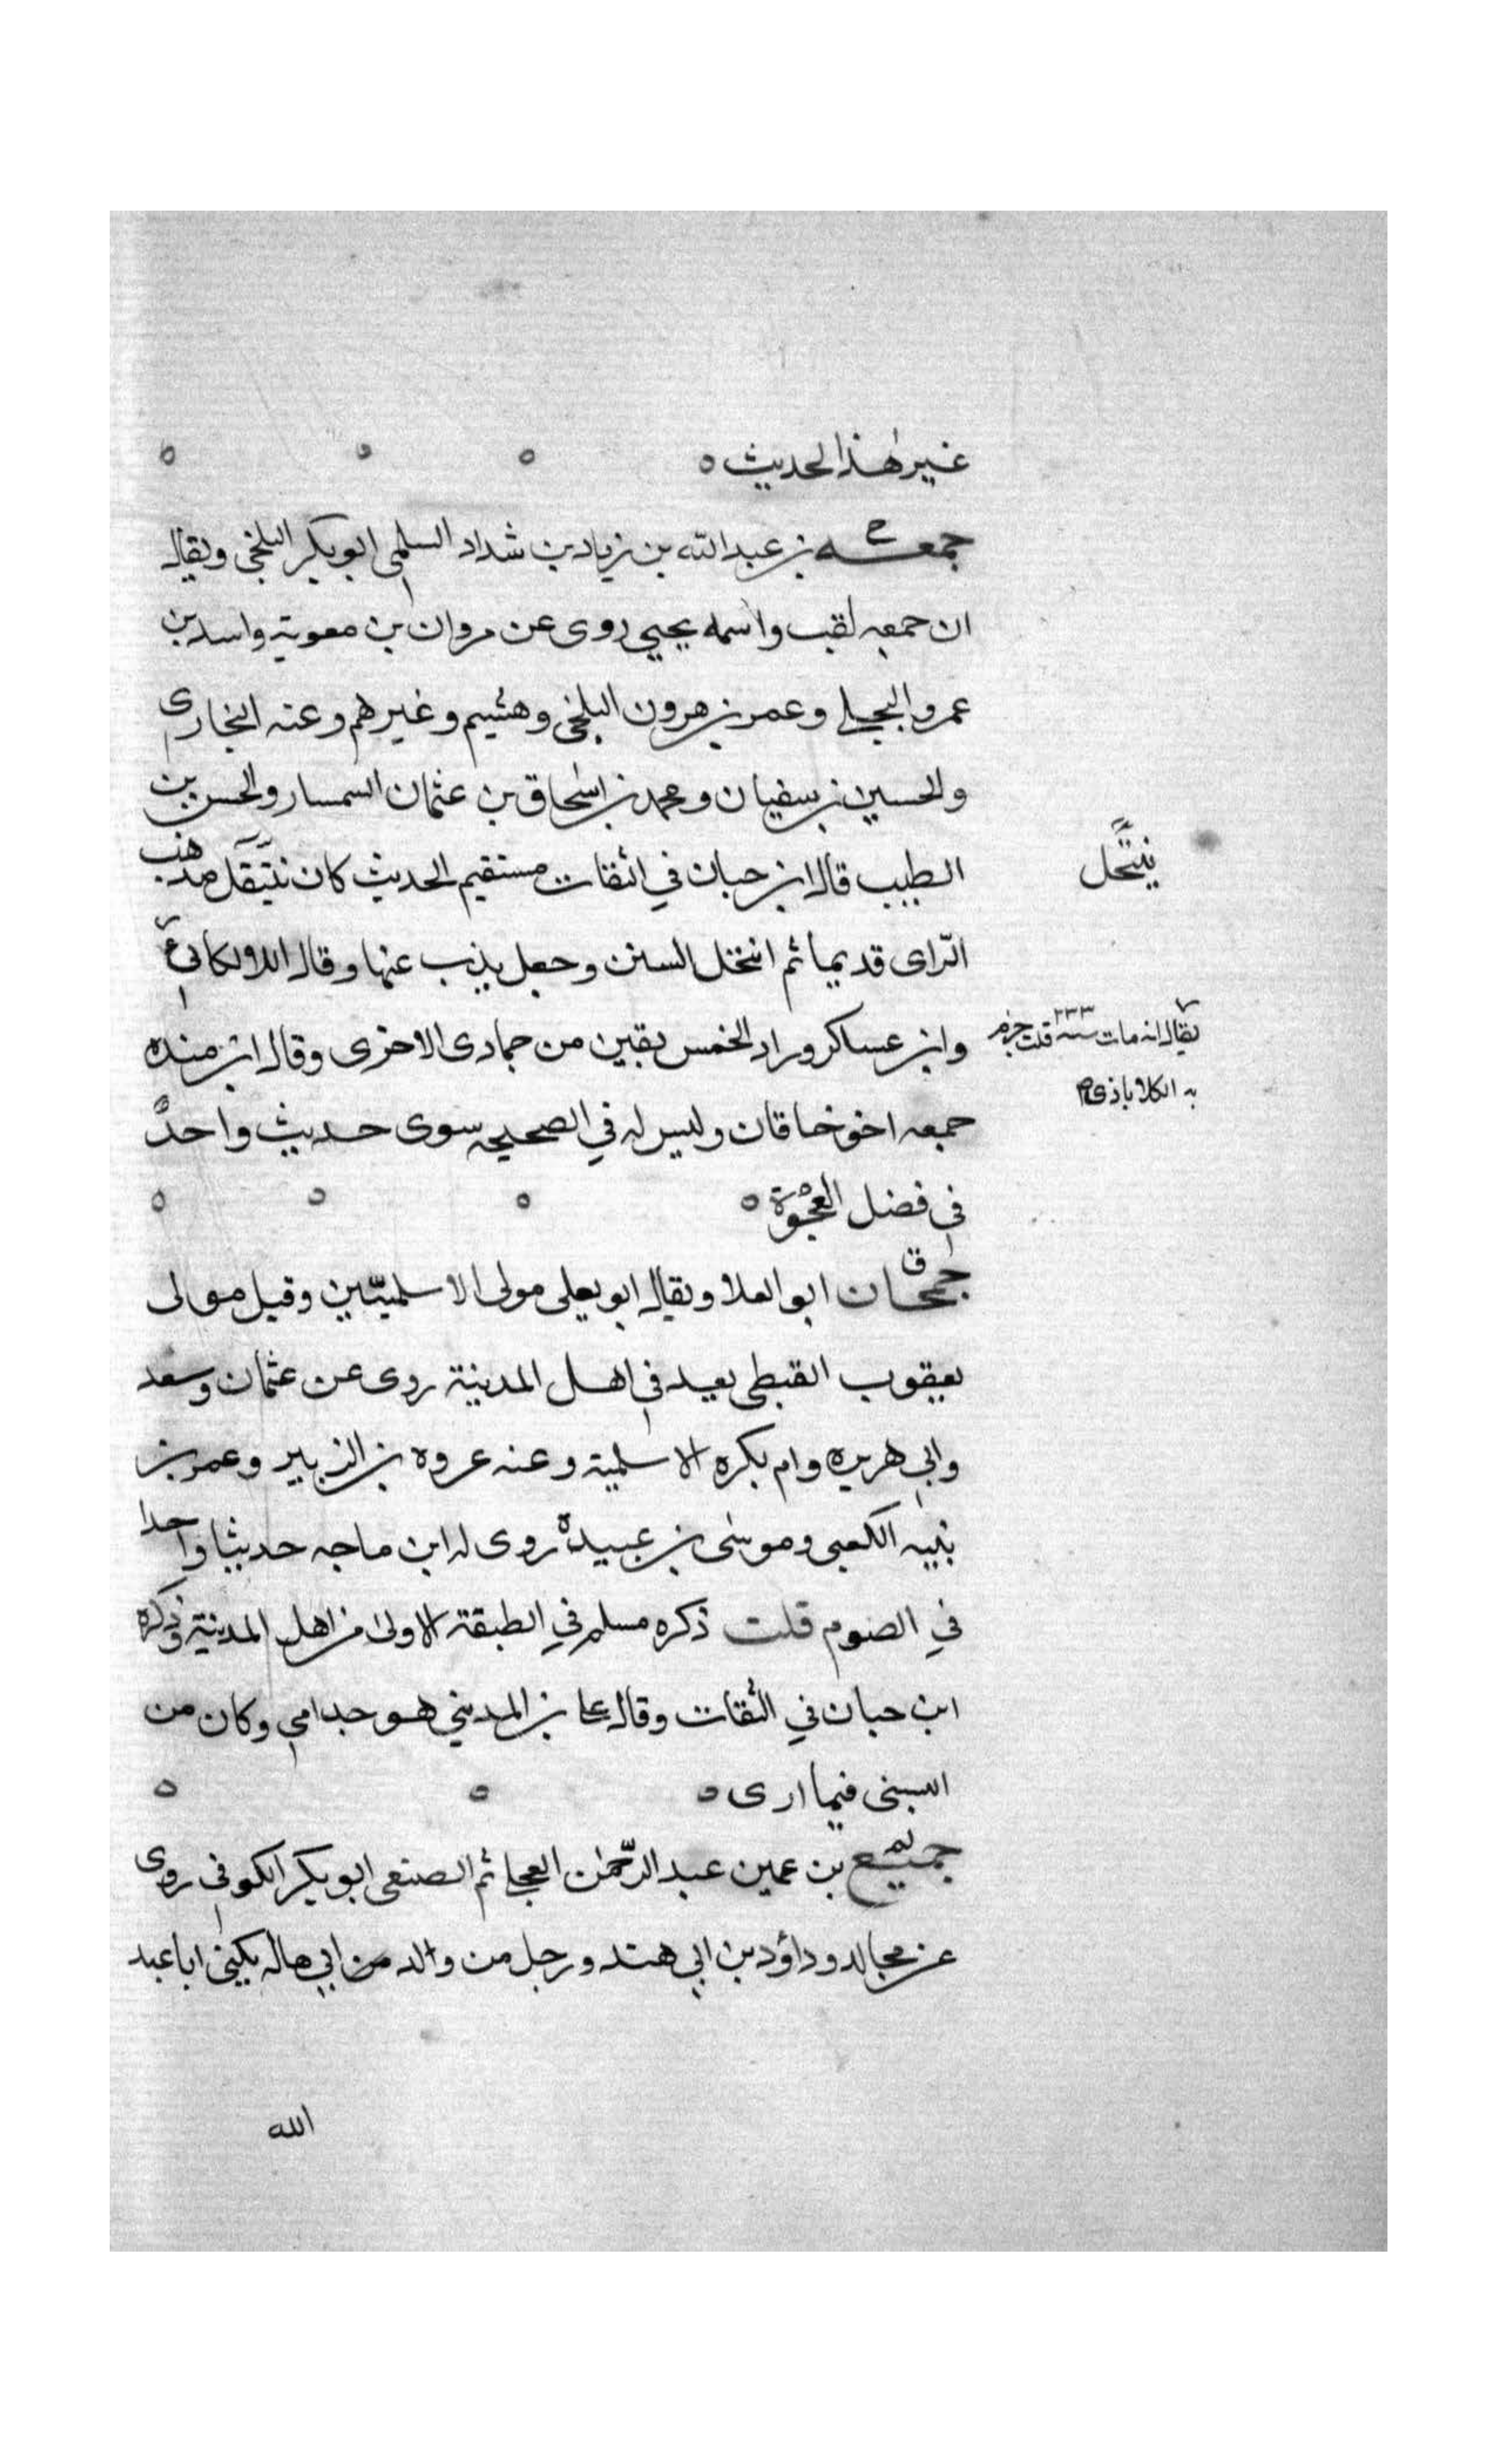 غير هٰذا الحديث ٥ ٥ ٥ ٥
جمعـــه بن عبدالله بن زياد بن شداد السلمي ابو بكر البلخي ويقال
ان جمعه لقب واسمه يحيي روى عن مروان بن معوية واسد بن
عمرو البجلي وعمر بن هرون البلخي وهشيم وغيرهم وعنه البخاري
والحسين بن سفيان ومحمد بن اسٰحاق بن عثمان السمسار والحسن بن
الطبيب قال ابن حبان في الثقات مستقيم الحديث كان ينتقل مذهب
ينتحل
الرّاى قديما ثم انتحل السنن وجعل يذب عنها وقال اللالكائي
وابن عساكر وزاد لخمس بقين من جمادى الاخرى وقال ابن منده
يقال انه مات سنة ٢٣٣ قلت جزم
به الكلاباذي
جمعه اخو خاقان وليس له في الصحيح سوى حديث واحد
في فضل العجْوة ٥ ٥ ٥ ٥
ق
جمحـان ابو العلا ويقال ابو يعلى مولى الاسلميّين وقيل مولى
يعقوب القبطي يعد في اهل المدينة روى عن عثمان وسعد
وابي هريره وام بكره الاسلمية وعنه عروه بن الزبير وعمر بن
نبيه الكعبي وموسٰى بن عبيدة روى له ابن ماجه حديثا واحدا
في الصوم قلت ذكره مسلم في الطبقة الاولى من اهل المدينة وذكره
ابن حبان في الثقات وقال علي بن المديني هو جد امي وكان من
السبي فيما ارى ٥ ٥ ٥
تم
جميع بن عمير بن عبد الرّحمٰن العجلي ثم الضبعي ابو بكر الكوفي روى
عن مجالد وداؤد بن ابي هند ورجل من والد من ابي هاله يكنى ابا عبد
الله